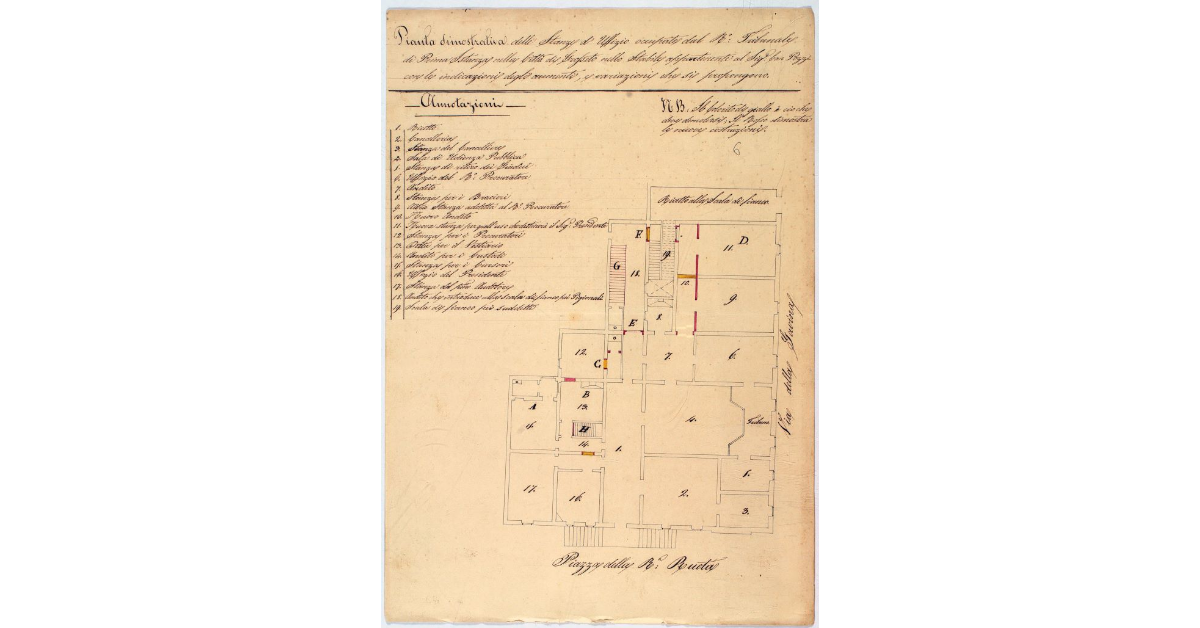 Pianta dimostrativa delle Stanze d'Uffizio occupate dal R.º Tribunale
di Prima Istanza nella Città di Grosseto nello Stabile appartenente al Sig.
con le indicazioni degli aumenti, e variazioni che si propongono.
Annotazioni
N B. Il Colorito di giallo è ciò che
deve demolirsi. Il Rosso dimostra
le nuove costruzioni.
6
1. Ricetto
2. Cancelleria
3. Stanza del Cancelliere
4. Sala di Udienza Pubblica
5. Stanza di ritiro dei Giudici
6. Uffizio del R.º Procuratore
7. Andito
8. Stanza per i
9. Altra Stanza addetta al R.º Procuratore
10. Nuovo Andito
11. Nuova stanza per il Sig.r Presidente
12. Stanza per i Procuratori
13. Detta per il Vestiario
14. Andito per i Custodi
15. Stanza per i Cursori
16. Uffizio del Presidente
17. Stanza del
18. Andito che introduce alla Scala di fianco
19. Scala di fianco
Ricetto alla Scala di fianco
F.
D.
11.
G
18.
19.
10.
9.
8.
E
12.
C.
7.
6.
B
13.
A
4.
H
14.
1.
5.
17.
16.
2.
3.
Via della
Piazza della R.ª Ruota